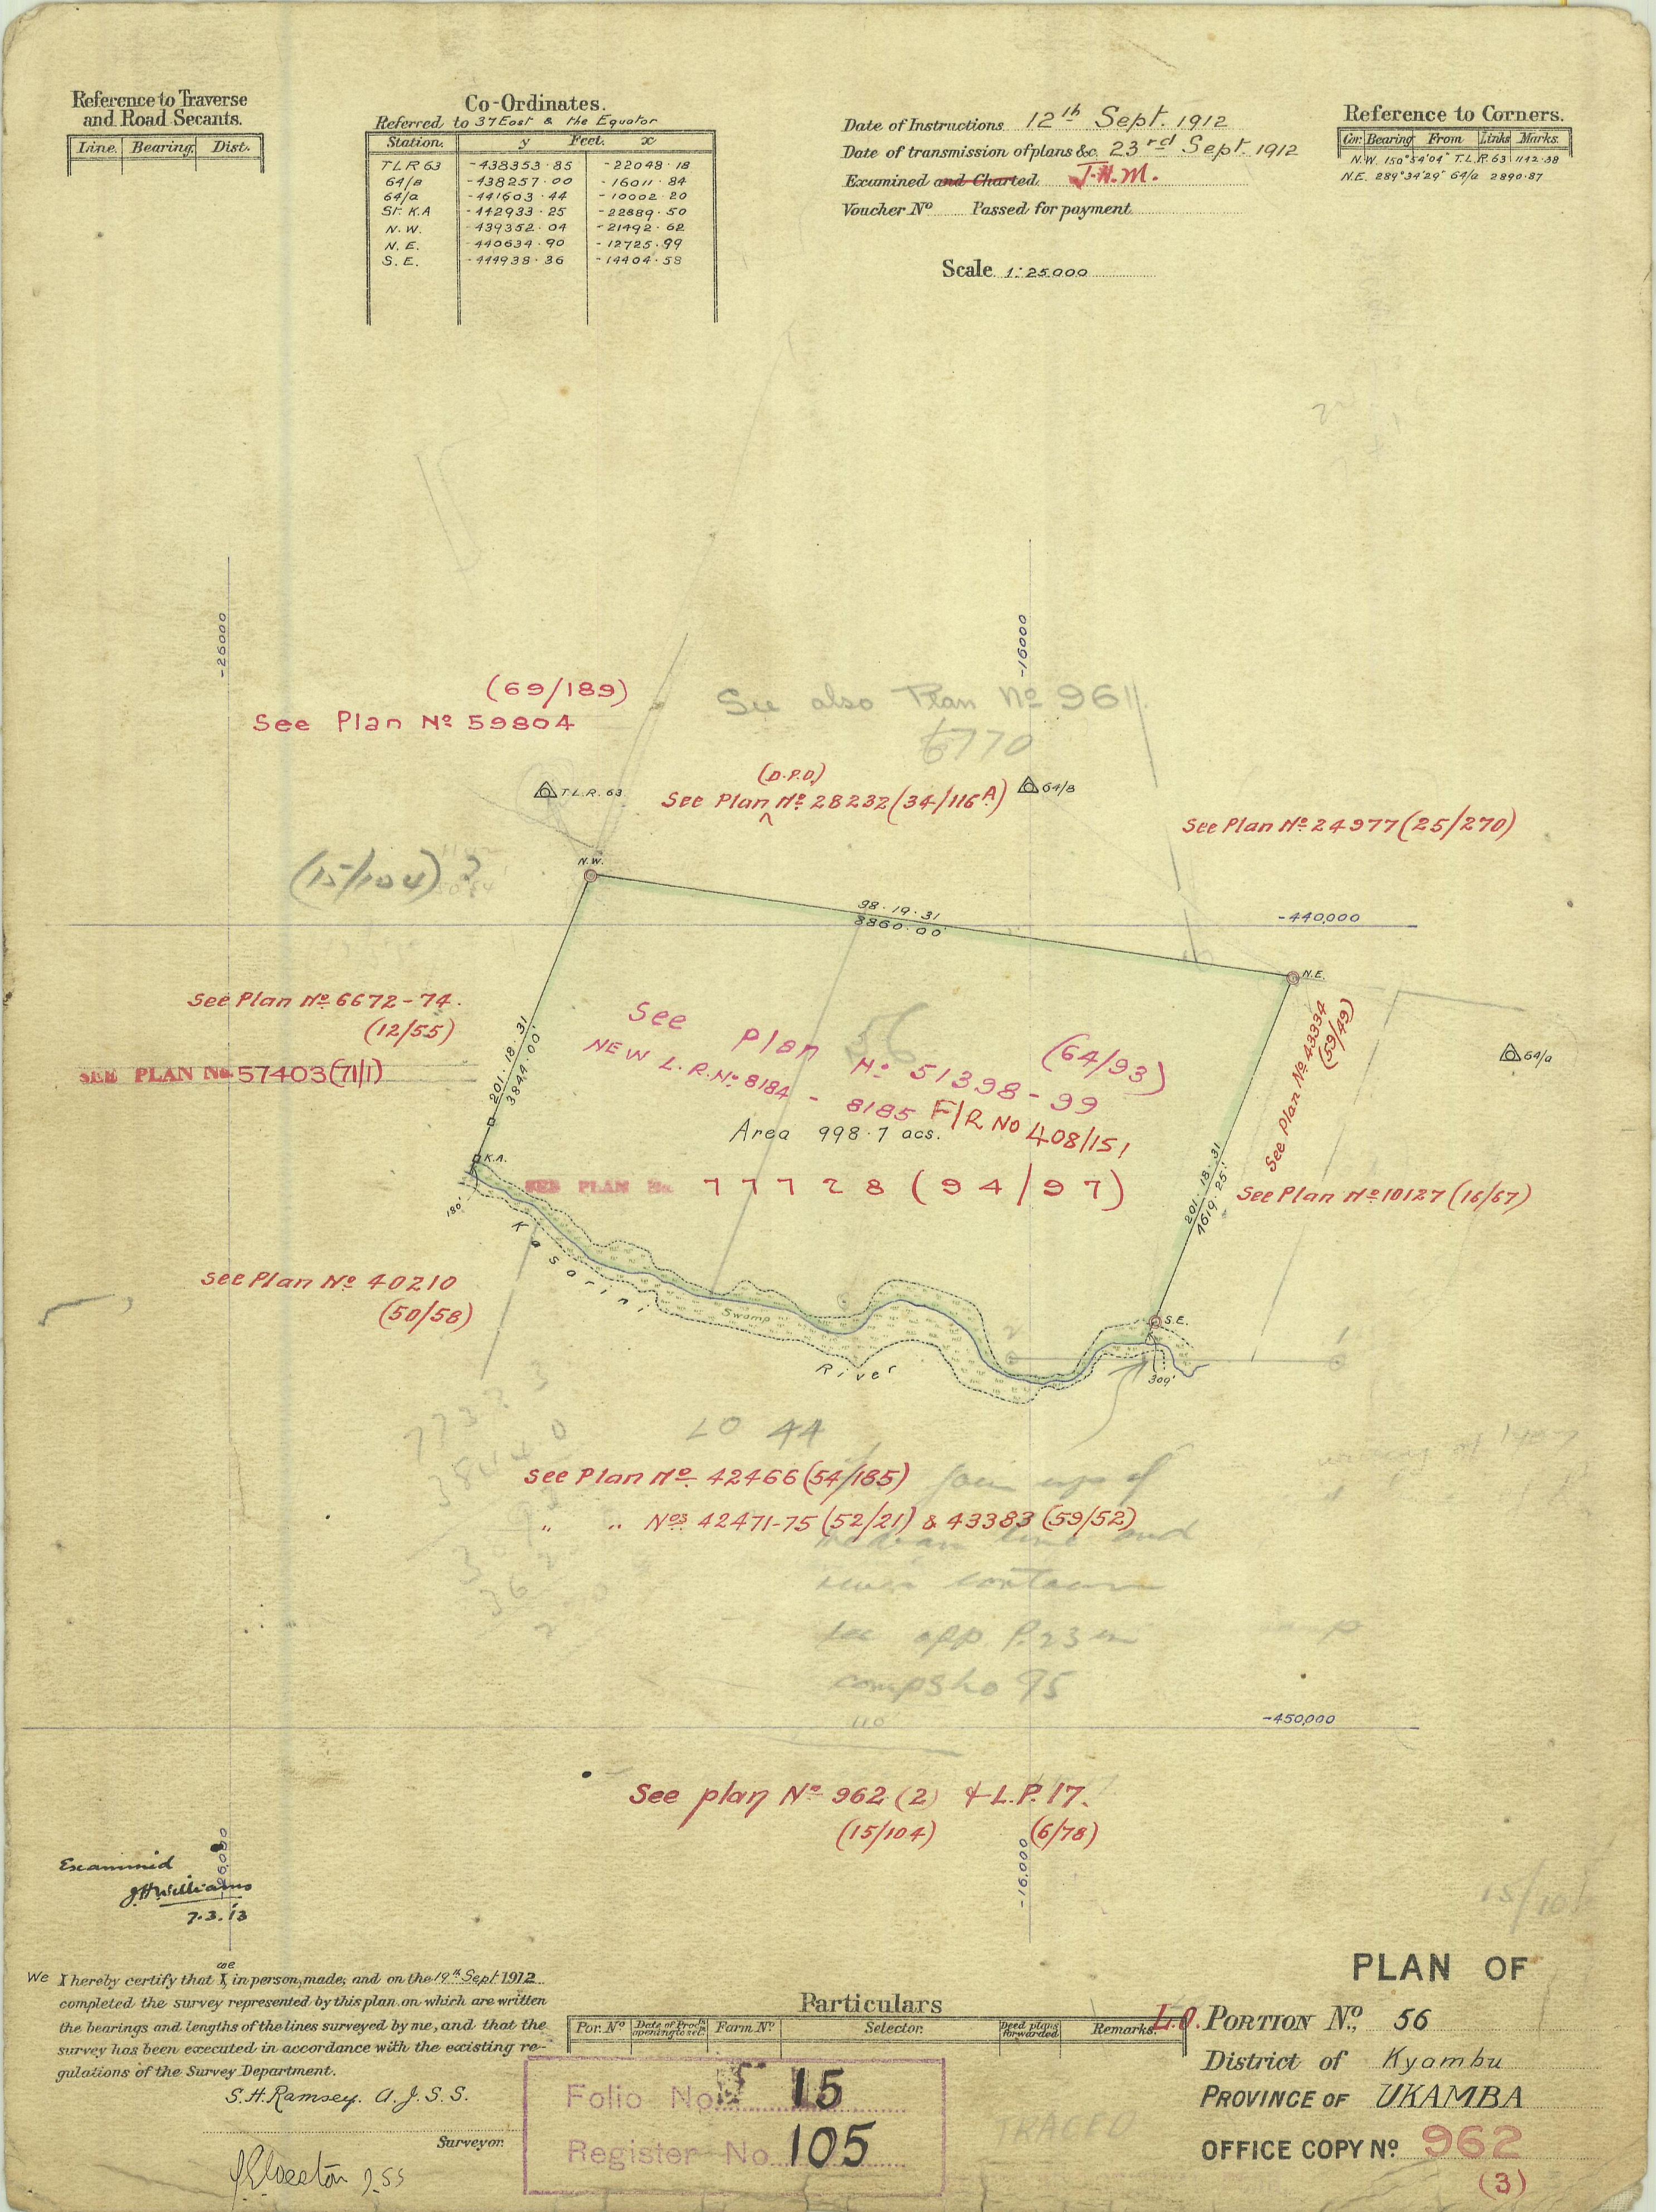 Reference to Traverse
and Road Secants.
Line. Bearing. Dist.
Co-Ordinates.
Referred to 37 East & the Equator
Station. y Feet. x
T L R 63 -438353·85 -22048·18
64/8 -438257·00 -16011·84
64/a -441603·44 -10002·20
St. K.A -442933·25 -22889·50
N.W. -439352·04 -21492·62
N.E. -440634·90 -12725·99
S.E. -444938·36 -14404·58
Date of Instructions 12th Sept. 1912
Date of transmission of plans &c. 23rd Sept. 1912
Examined and Charted. J.H.M.
Voucher No Passed for payment
Scale 1:25000
Reference to Corners.
Cor. Bearing From Links Marks.
N.W. 150°54'04" T.L.R.63 1142·38
N.E. 289°34'29" 64/a 2890·87
-26000
-16000
(69/189)
See Plan No 59804
See also Plan No 961
6770
(D.P.D)
See Plan No 28232 (34/116A)
T.L.R. 63
64/8
See Plan No 24977 (25/270)
(15/104) ?
N.W.
98·19·31
8860·00
-440,000
N.E.
See Plan No 6672-74.
(12/55)
SEE PLAN No. 57403 (71/1)
201·18·31
3844·00'
56
See Plan No 51398-99 (64/93)
NEW L.R. No 8184 - 8185 F/R NO 408/151
Area 998·7 acs.
See Plan No 43334
(59/49)
64/a
K.A.
SEE PLAN No. 77728 (94/97)
201·18·31
4619·25'
See Plan No 10127 (16/67)
180'
Kasarini
See Plan No 40210
(50/58)
Swamp
River
S.E.
309'
LO 44
See Plan No 42466 (54/185)
" " Nos 42471-75 (52/21) & 43383 (59/52)
join up of
median line and
see opp P.23 in
110
-450,000
See plan No 962 (2) & L.P. 17.
(15/104) (6/78)
Examined
JHWilliams
7.3.13
-26,000
-16,000
We I hereby certify that we I, in person, made, and on the 19th Sept 1912
completed the survey represented by this plan on which are written
the bearings and lengths of the lines surveyed by me, and that the
survey has been executed in accordance with the existing re-
gulations of the Survey Department.
S.H. Ramsey. A.J.S.S.
Surveyor.
Particulars
Por. No Farm No Selector. Deed plans forwarded Remarks.
Folio No 15
Register No 105
TRACED
PLAN OF
L.O. PORTION No, 56
District of Kyambu
PROVINCE OF UKAMBA
OFFICE COPY No 962
(3)